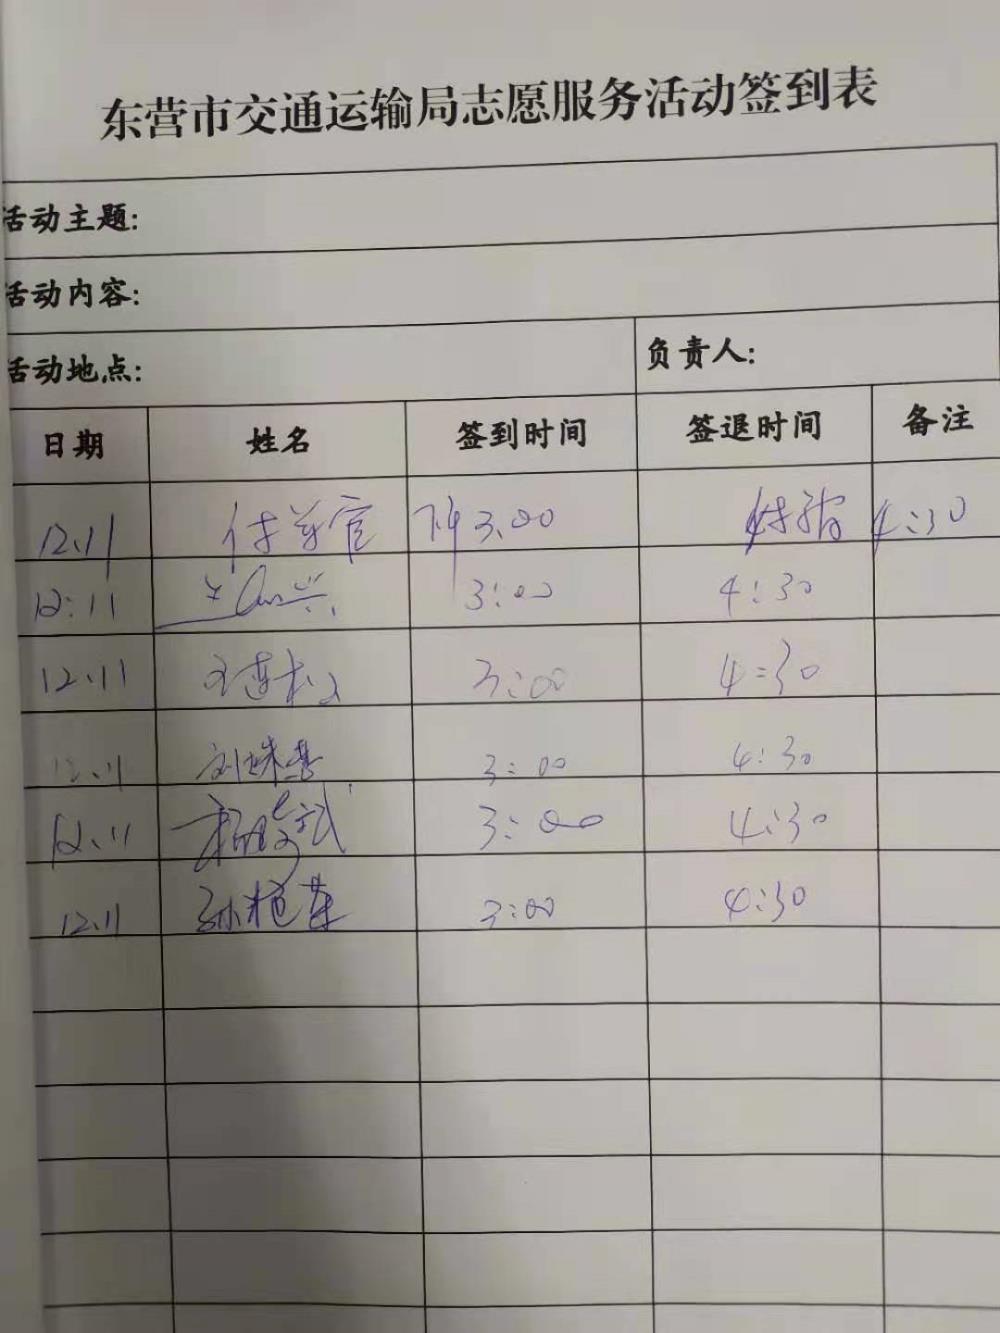 东营市交通运输局志愿服务活动签到表
活动主题:
活动内容:
活动地点: 负责人:
日期 姓名 签到时间 签退时间 备注
12.11 下午3:00 4:30
12:11 3:00 4:30
12.11 3:00 4:30
12.11 刘珠 3:00 4:30
12.11 杨 3:00 4:30
12.11 孙艳 3:00 4:30